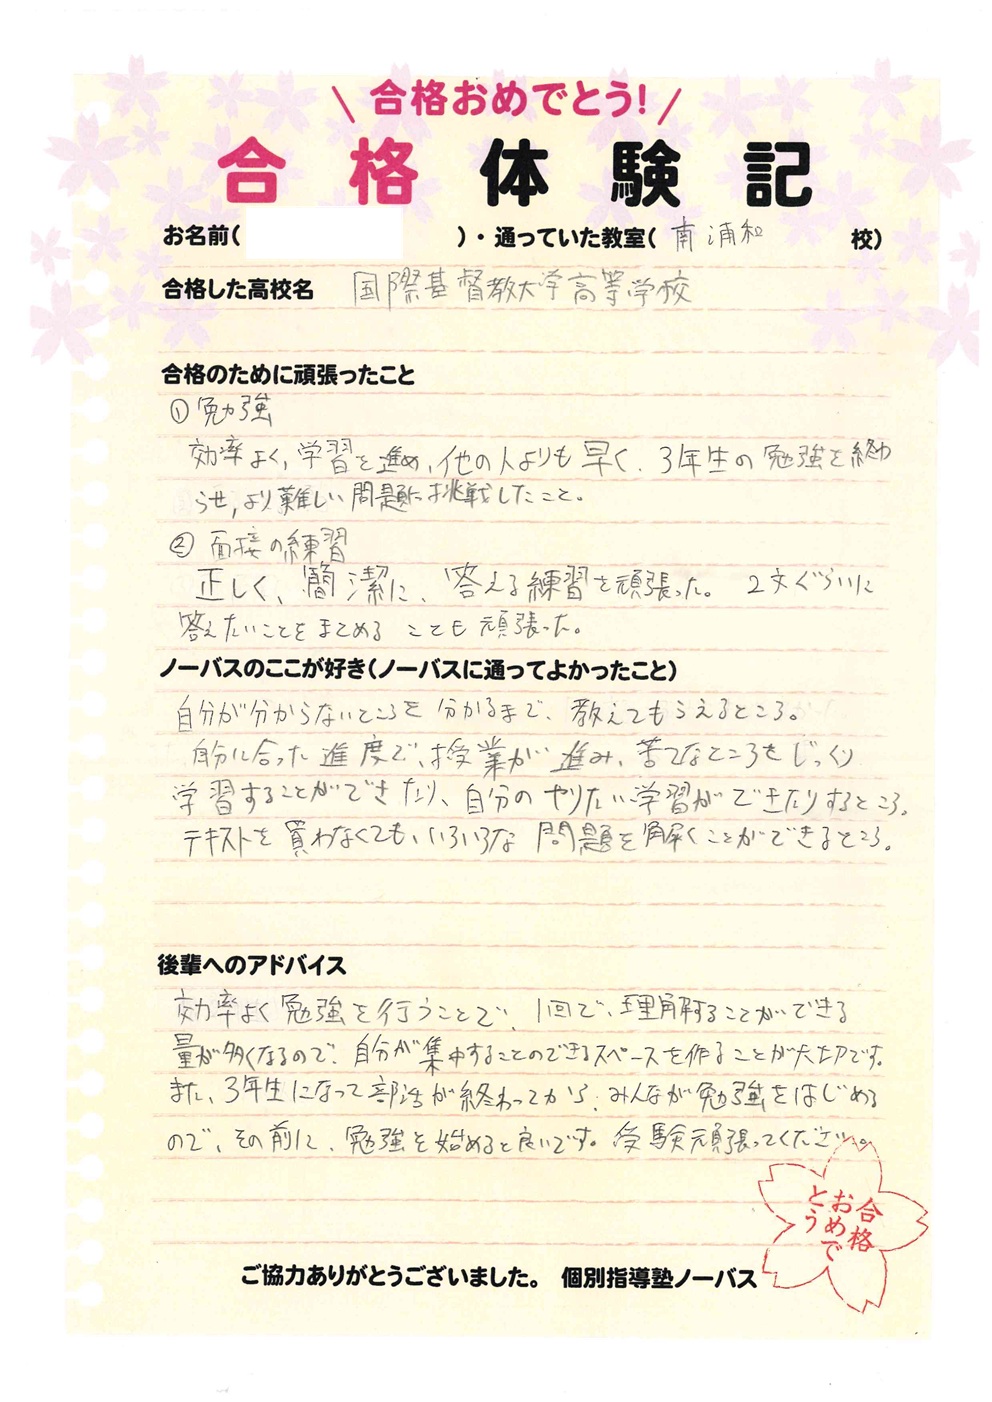 合格おめでとう!
合格体験記
お名前( )・通っていた教室( 南浦和 校)
合格した高校名 国際基督教大学高等学校
合格のために頑張ったこと
① 勉強
効率よく、学習を進め、他の人よりも早く、3年生の勉強を終わ
らせ、より難しい問題に挑戦したこと。
② 面接の練習
正しく、簡潔に、答える練習を頑張った。 2文ぐらいに
答えたいことをまとめることも頑張った。
ノーバスのここが好き(ノーバスに通ってよかったこと)
自分が分からないところを分かるまで、教えてもらえるところ。
自分に合った進度で、授業が進み、苦手なところをじっくり
学習することができたり、自分のやりたい学習ができたりするところ。
テキストを買わなくても、いろいろな問題を解くことができるところ。
後輩へのアドバイス
効率よく勉強を行うことで、1回で、理解することができる
量が多くなるので、自分が集中することのできるスペースを作ることが大切です。
また、3年生になって部活が終わってから、みんなが勉強をはじめる
ので、その前に、勉強を始めると良いです。受験頑張ってください。
合格おめでとう
ご協力ありがとうございました。 個別指導塾ノーバス